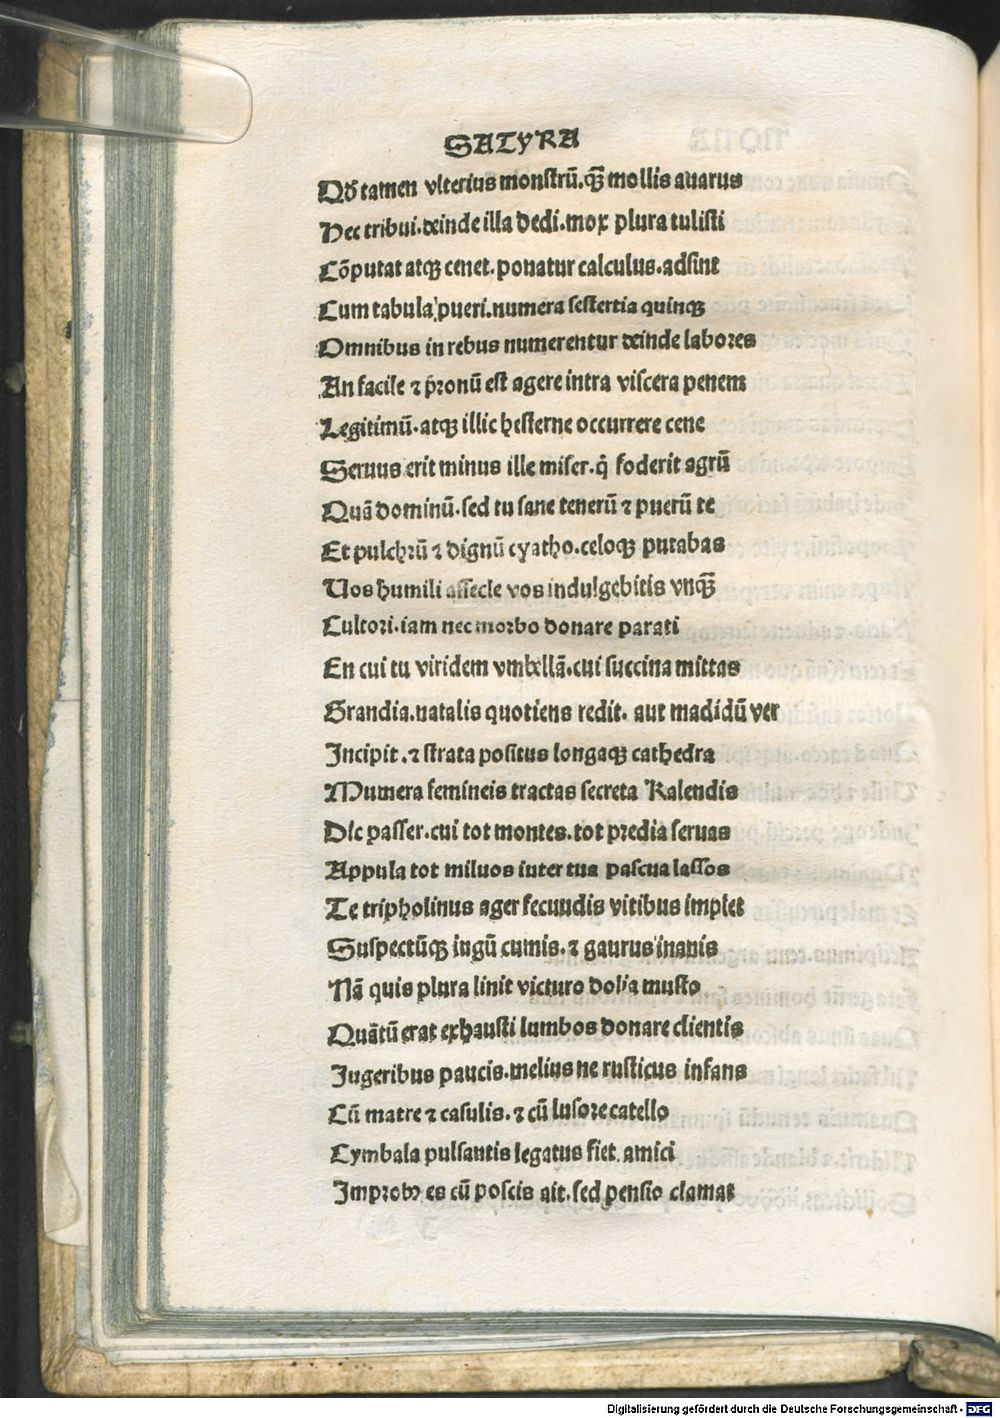 SATYRA
Qd̕ tamen vlterius monstrū.q̄ꝫ mollis auarus
Hec tribui.deinde illa dedi.mox plura tulisti
Cōputat atqꝫ ceuet.ponatur calculus.adsint
Cum tabula pueri.numera sestertia quinqꝫ
Omnibus in rebus numerentur deinde labores
An facile ⁊ p̄ronū est agere intra viscera penem
Legitimū.atqꝫ illic hesterne occurrere cene
Seruus erit minus ille miser.q̇ foderit agrū
Quā dominū.sed tu sane tenerū ⁊ puerū te
Et pulchrū ⁊ dignū cyatho.celoqꝫ putabas
Uos humili assecle vos indulgebitis vnq̄ꝫ
Cultori.iam nec morbo donare parati
En cui tu viridem vmbellā.cui succina mittas
Grandia.natalis quotiens redit. aut madidū ver
Incipit.⁊ strata positus longaqꝫ cathedra
Munera femineis tractas secreta Kalendis
Dic passer.cui tot montes.tot predia seruas
Appula tot miluos inter tua pascua lassos
Te tripholinus ager fecundis vitibus implet
Suspectūqꝫ iugū cumis.⁊ gaurus inanis
Nā quis plura linit victuro dolia musto
Quātū erat exhausti lumbos donare clientis
Jugeribus paucis.melius ne rusticus infans
Cū matre ⁊ casulis.⁊ cū lusore catello
Cymbala pulsantis legatus fiet amici
Improbꝫ es cū poscis ait.sed pensio clamat
Digitalisierung gefördert durch die Deutsche Forschungsgemeinschaft - DFG